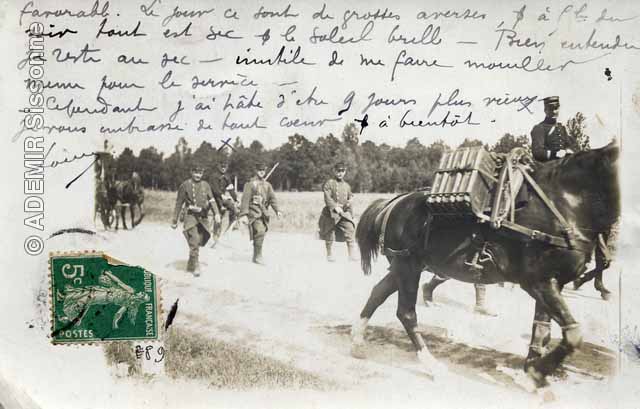 favorable. Le jour ce sont de grosses averses, & à 5h du
soir tout est sec & le soleil brille - Bien entendu
je reste au sec - inutile de me faire mouiller
même pour le service -
Cependant j'ai hâte d'être 9 jours plus vieux
je vous embrasse de tout coeur & à bientôt.
Louis
© ADEMIR Sissonne
5c
POSTES
FRANÇAISE